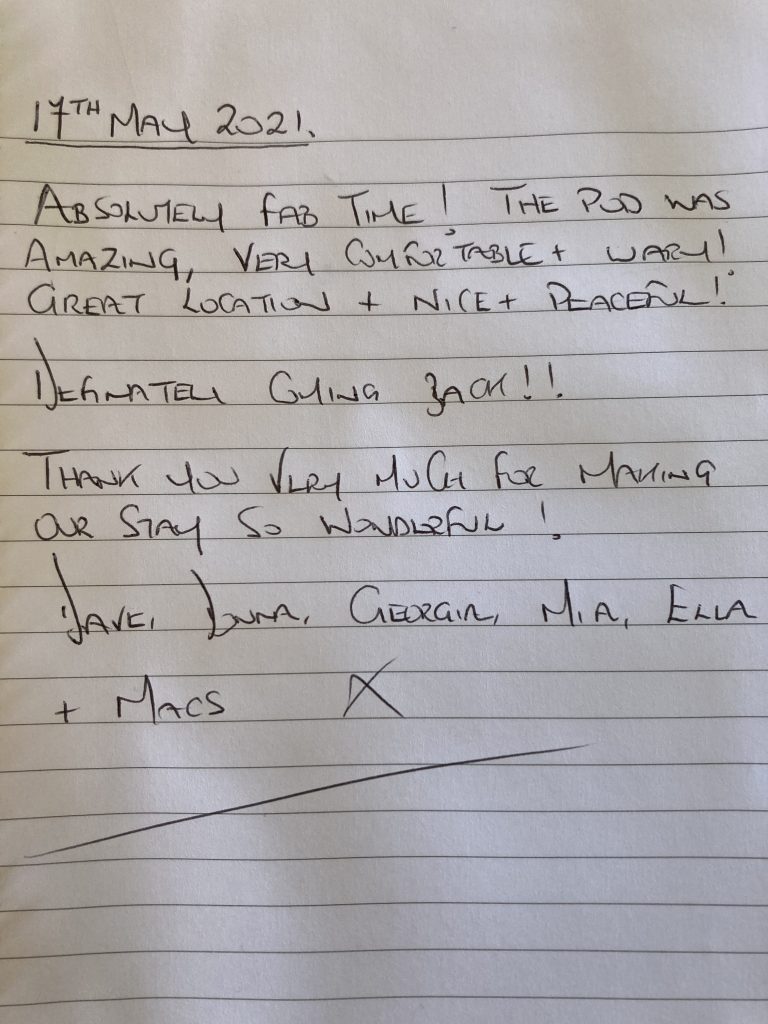 17TH MAY 2021.
ABSOLUTELY FAB TIME! THE POD WAS
AMAZING, VERY COMFORTABLE + WARM!
GREAT LOCATION + NICE + PEACEFUL!
DEFINATELY GOING BACK!!
THANK YOU VERY MUCH FOR MAKING
OUR STAY SO WONDERFUL!
DAVE, DONNA, GEORGIA, MIA, ELLA
+ MACS X